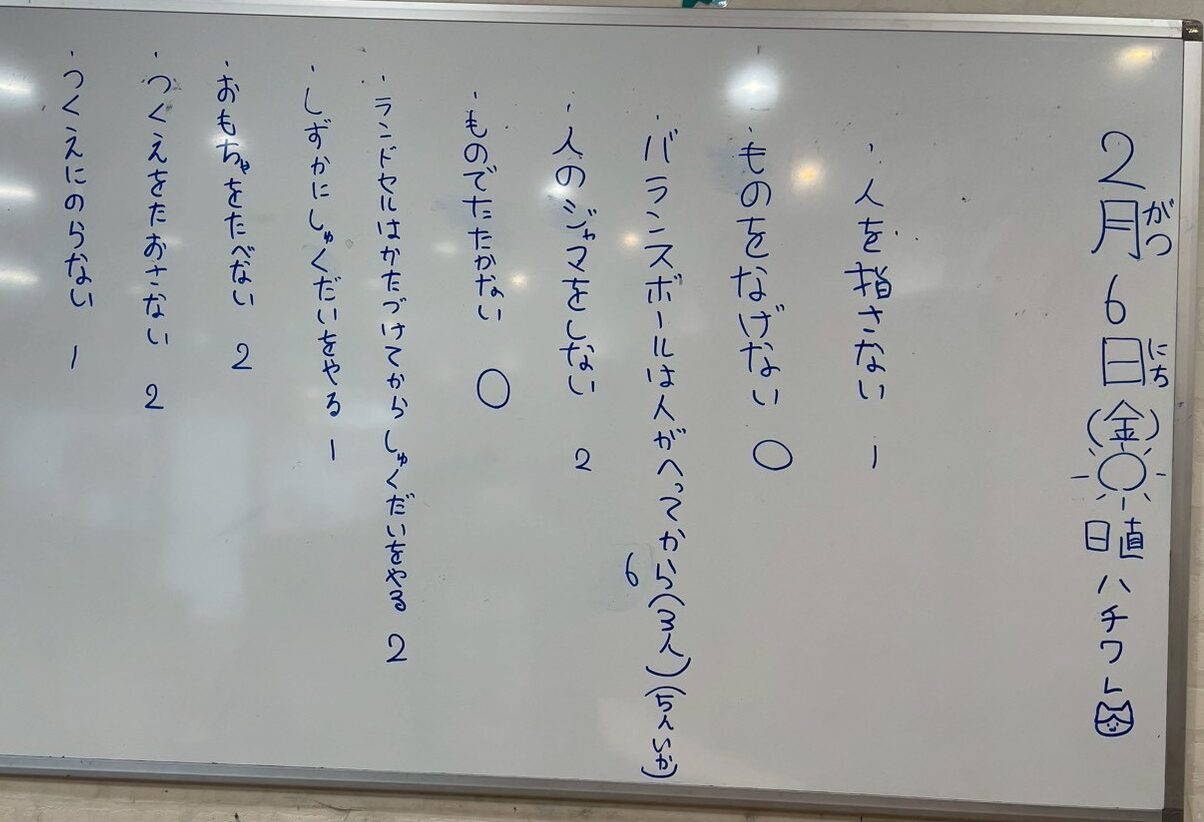 2月6日(金)日直ハチワレ
がつ
にち
・人を指さない 1
・ものをなげない 〇
・バランスボールは人がへってから(3人)(5人いか)
6
・人のジャマをしない 2
・ものでたたかない 〇
・ランドセルはかたづけてからしゅくだいをやる 2
・しずかにしゅくだいをやる 1
・おもちゃをたべない 2
・つくえをたおさない 2
・つくえにのらない 1